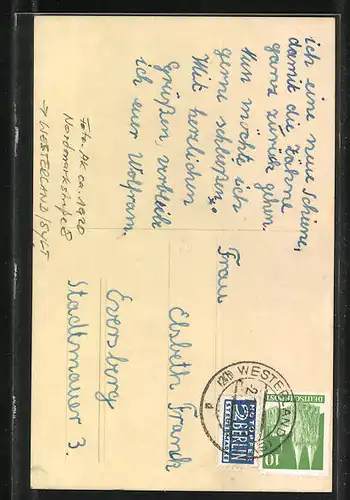 ich eine neue Schiene,
damit die Zähne
ganz zurück gehen.
Nun möchte ich
gerne schließen.
Mit herzlichen
Grüßen, verbleibe
ich euer Wolfram.
Foto-AK ca. 1920
Nordmarkstraße 8
→ WESTERLAND/SYLT
Frau
Elsbeth Franck
Eversberg
Stadtmauer 3.
WESTERLAND
NOTOPFER
2 BERLIN
STEUERMARKE
DEUTSCHE POST
10